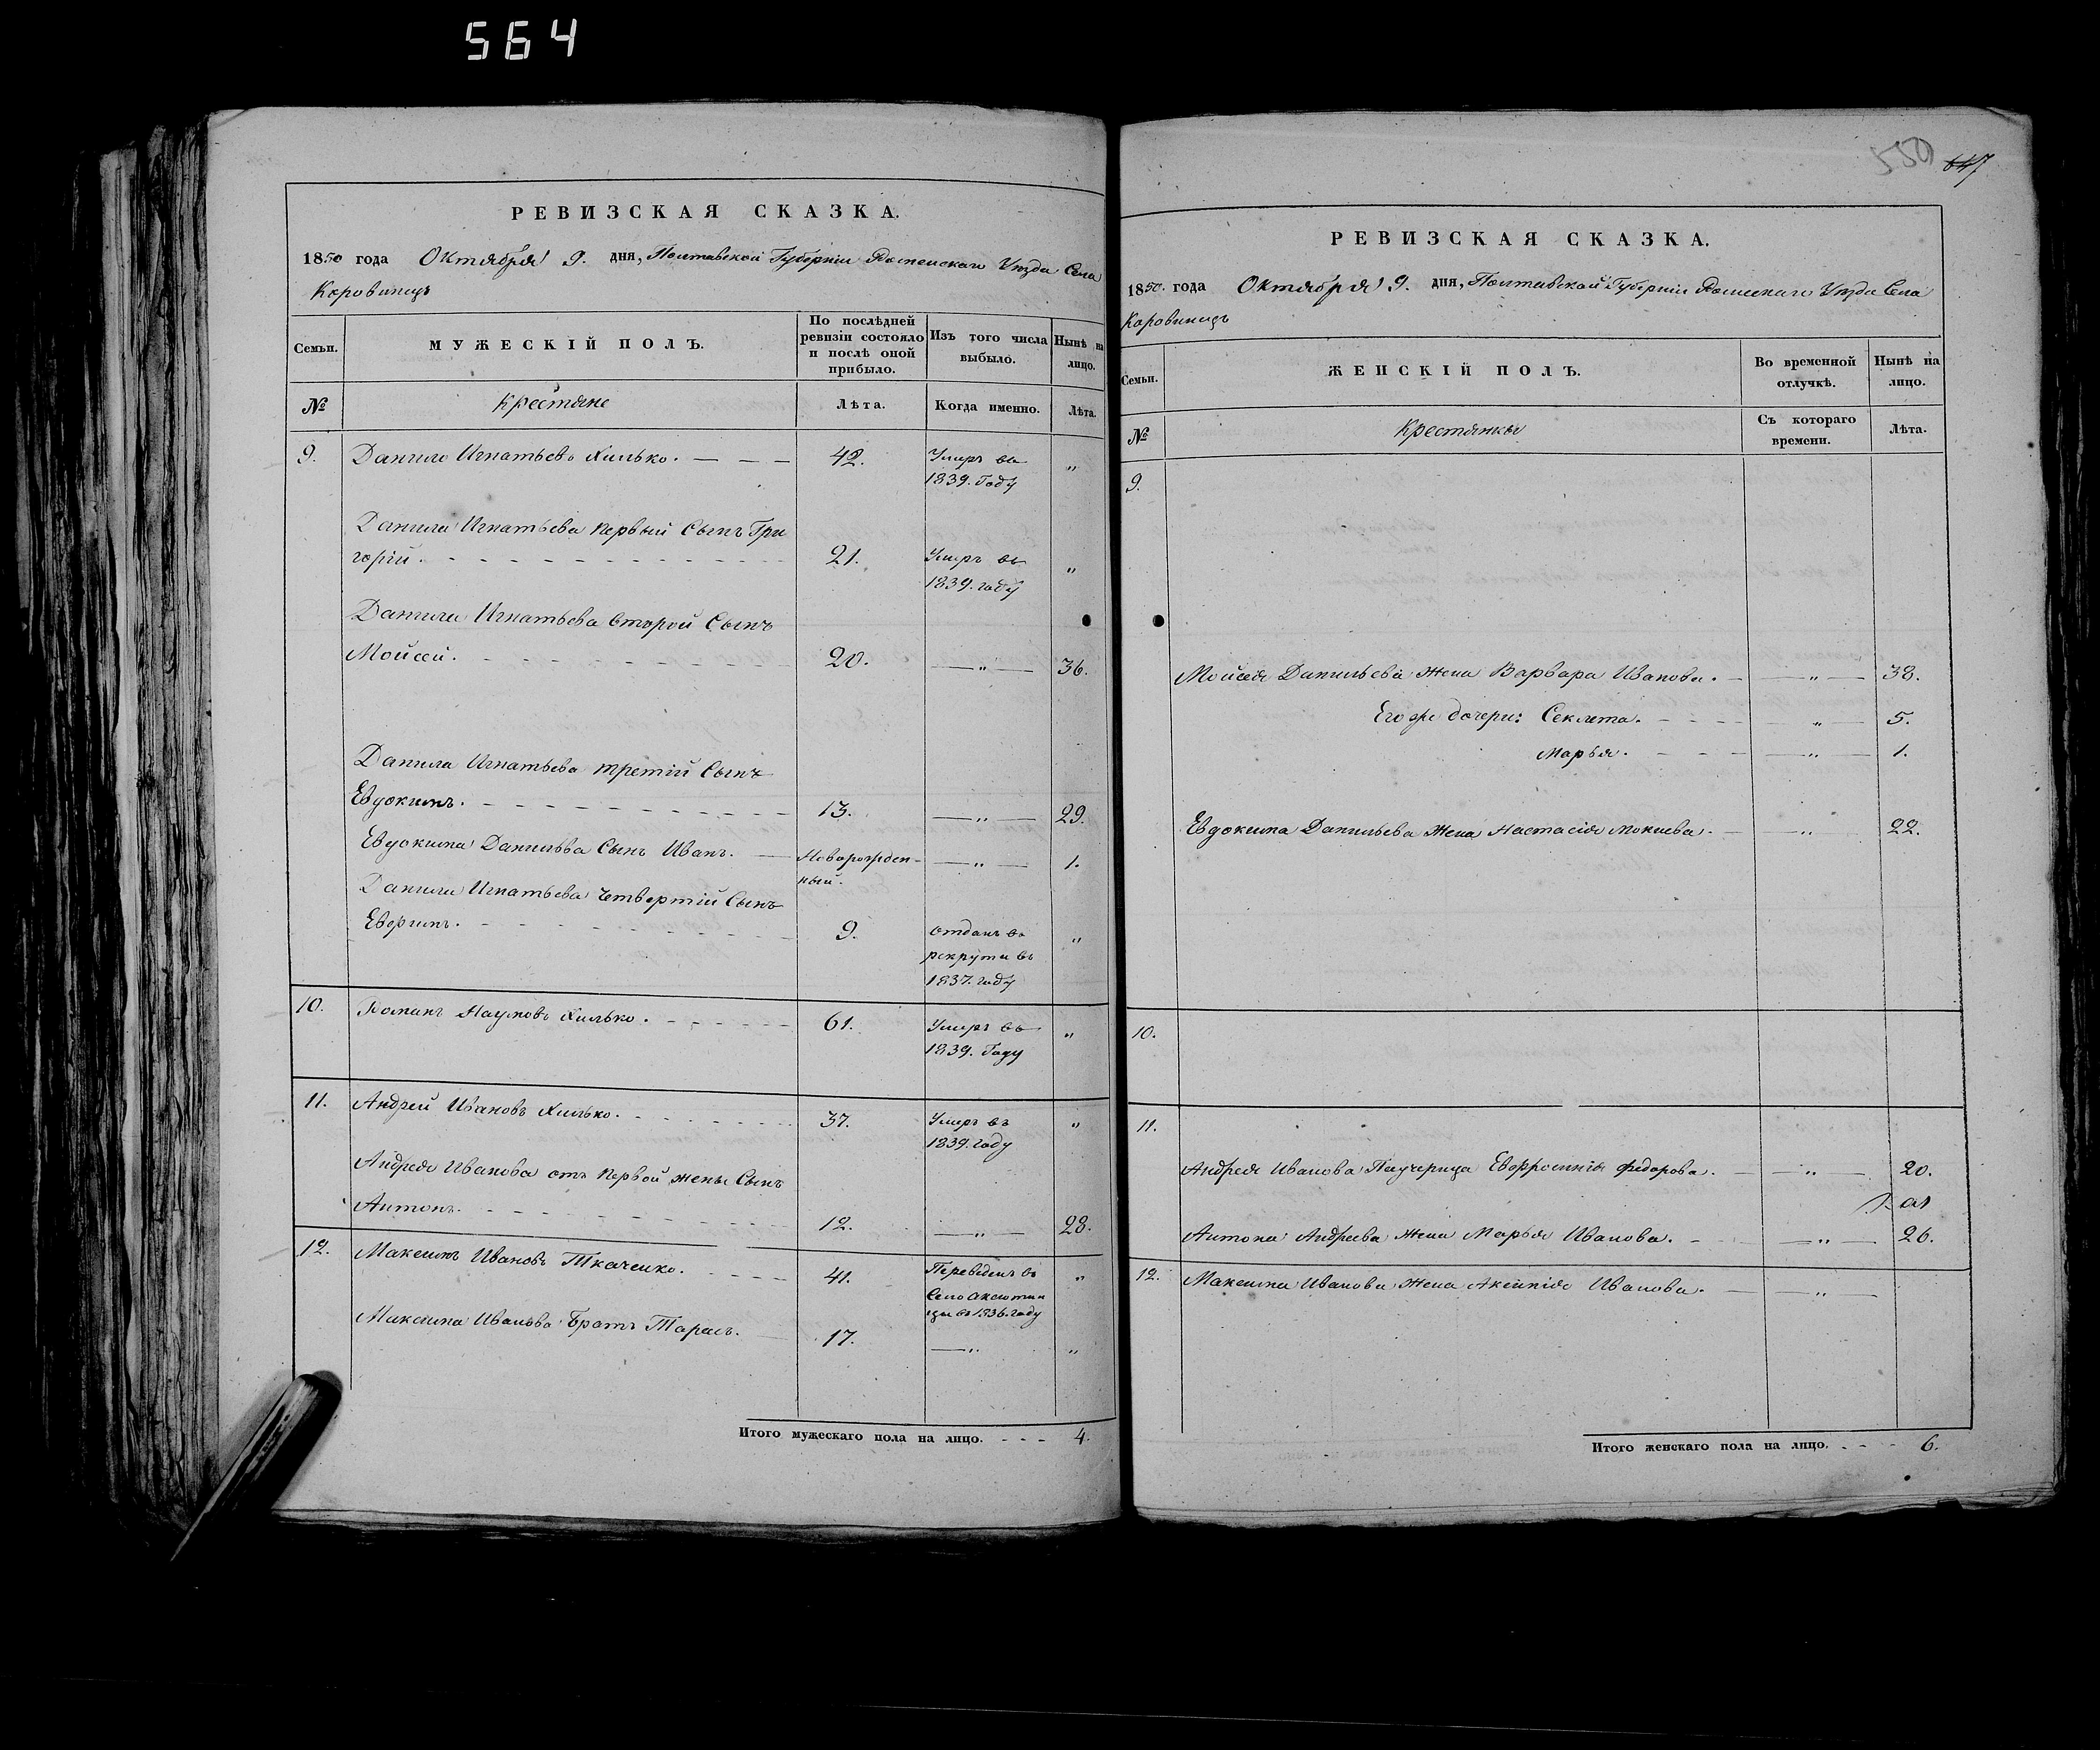 564
РЕВИЗСКАЯ СКАЗКА.
1850 года Октября 9. дня, Полтавской Губерніи Роменскаго Уѣзда Села
Коровинецъ
Семьи.
МУЖЕСКІЙ ПОЛЪ.
По послѣдней
ревизіи состояло
и послѣ оной
прибыло.
Изъ того числа
выбыло.
Нынѣ на
лицо.
№
Крестяне
Лѣта.
Когда именно.
Лѣта.
9. Данило Игнатьевъ Хилько. 42. Умеръ въ "
1839. Году
Данила Игнатьева первый Сынъ Гри
горій. 21. Умеръ въ "
1839. году
Данила Игнатьева второй Сынъ
Мойсей. 20. " 36.
Данила Игнатьева третій Сынъ
Евдокимъ. 13. " 29.
Евдокима Данильева Сынъ Иванъ. Новорожден- " 1.
ный.
Данила Игнатьева четвертій Сынъ
9. отданъ въ "
рекруты въ
1837. году
10. Романъ Наумовъ Хилько. 61. Умеръ въ "
1839. Году
11. Андрей Ивановъ Хилько. 37. Умеръ въ "
1839. году
Андрея Иванова отъ первой жены Сынъ
Антонъ. 12. " 28.
12. Максимъ Ивановъ Ткаченко. 41. Переведенъ въ "
Село Аксютин
цы въ 1836. году
Максима Иванова Братъ Тарасъ. 17. " "
Итого мужескаго пола на лицо. 4.
550 647
РЕВИЗСКАЯ СКАЗКА.
1850. года Октября 9. дня, Полтавской Губерніи Роменскаго Уѣзда Села
Коровинецъ
Семьи.
ЖЕНСКІЙ ПОЛЪ.
Во временной
отлучкѣ.
Нынѣ на
лицо.
№
Крестянки
Съ котораго
времени.
Лѣта.
9.
Мойсея Данильева жена Варвара Иванова. " 38.
Его же дочери: Секлета. " 5.
Марья. " 1.
Евдокима Данильева Жена Настасія Мокиева. " 22.
10.
11.
Андрея Иванова Падчерица Евфросинія Федорова. " 20.
Антона Андреева Жена Марья Иванова. " 26.
12. Максима Иванова Жена Аксинія Иванова. "
Итого женскаго пола на лицо. 6.